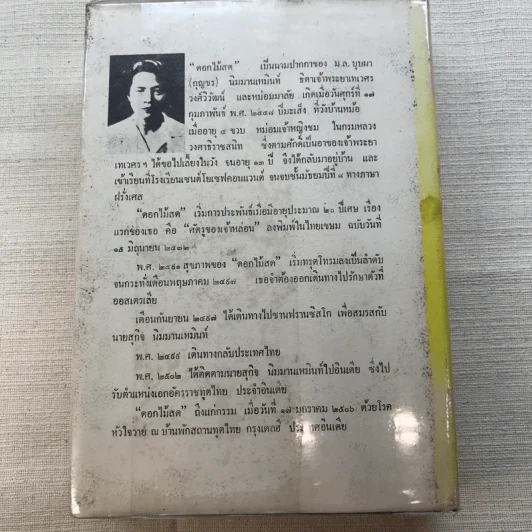 “ดอกไม้สด” เป็นนามปากกาของ ม.ล. บุบผา
(กุญชร) นิมมานเหมินท์ ธิดาเจ้าพระยาเทเวศร
วงศ์วิวัฒน์ และหม่อมมาลัย เกิดเมื่อวันศุกร์ที่ ๑๗
กุมภาพันธ์ พ.ศ. ๒๔๔๘ ปีมะเส็ง ที่วังบ้านหม้อ
เมื่ออายุ ๔ ขวบ หม่อมเจ้าหญิงชม ในกรมหลวง
วงศาธิราชสนิท ซึ่งตามศักดิ์เป็นอาของเจ้าพระยา
เทเวศรฯ ได้ขอไปเลี้ยงในวัง จนอายุ ๑๓ ปี จึงได้กลับมาอยู่บ้าน และ
เข้าเรียนที่โรงเรียนเซนต์โยเซฟคอนแวนต์ จนจบชั้นมัธยมปีที่ ๘ ทางภาษา
ฝรั่งเศส
“ดอกไม้สด” เริ่มการประพันธ์เมื่อมีอายุประมาณ ๒๐ ปีเศษ เรื่อง
แรกของเธอ คือ “ศัตรูของเจ้าหล่อน” ลงพิมพ์ในไทยเขษม ฉบับวันที่
๑๕ มิถุนายน ๒๔๗๒
พ.ศ. ๒๔๘๑ สุขภาพของ “ดอกไม้สด” เริ่มทรุดโทรมลงเป็นลำดับ
จนกระทั่งเดือนพฤษภาคม ๒๔๙๗ เธอจำต้องออกเดินทางไปรักษาตัวที่
ออสเตรเลีย
เดือนกันยายน ๒๔๙๗ ได้เดินทางไปซานฟรานซิสโก เพื่อสมรสกับ
นายสุกิจ นิมมานเหมินท์
พ.ศ. ๒๔๙๙ เดินทางกลับประเทศไทย
พ.ศ. ๒๕๐๒ ได้ติดตามนายสุกิจ นิมมานเหมินท์ไปอินเดีย ซึ่งไป
รับตำแหน่งเอกอัครราชทูตไทย ประจำอินเดีย
“ดอกไม้สด” ถึงแก่กรรม เมื่อวันที่ ๑๗ มกราคม ๒๕๐๖ ด้วยโรค
หัวใจวาย ณ บ้านพักสถานทูตไทย กรุงเดลฮี ประเทศอินเดีย